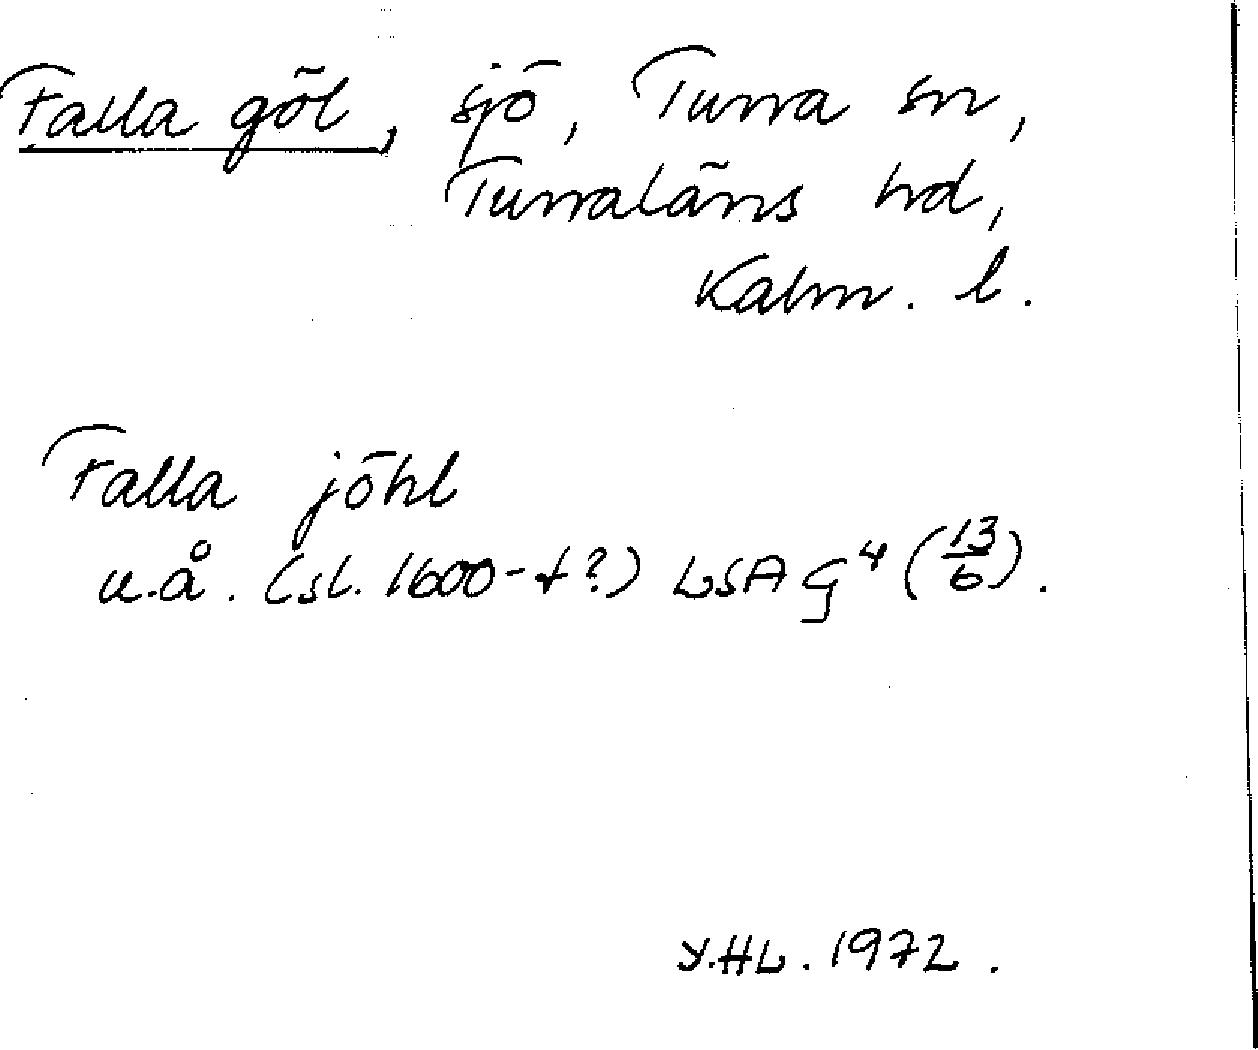 Falla göl, sjö, Tuna sn,
Tunaläns hd,
Kalm. l.
Falla jöhl
u.å. (sl. 1600-t?) LSA G⁴ (13/6).
Y.HL. 1972.